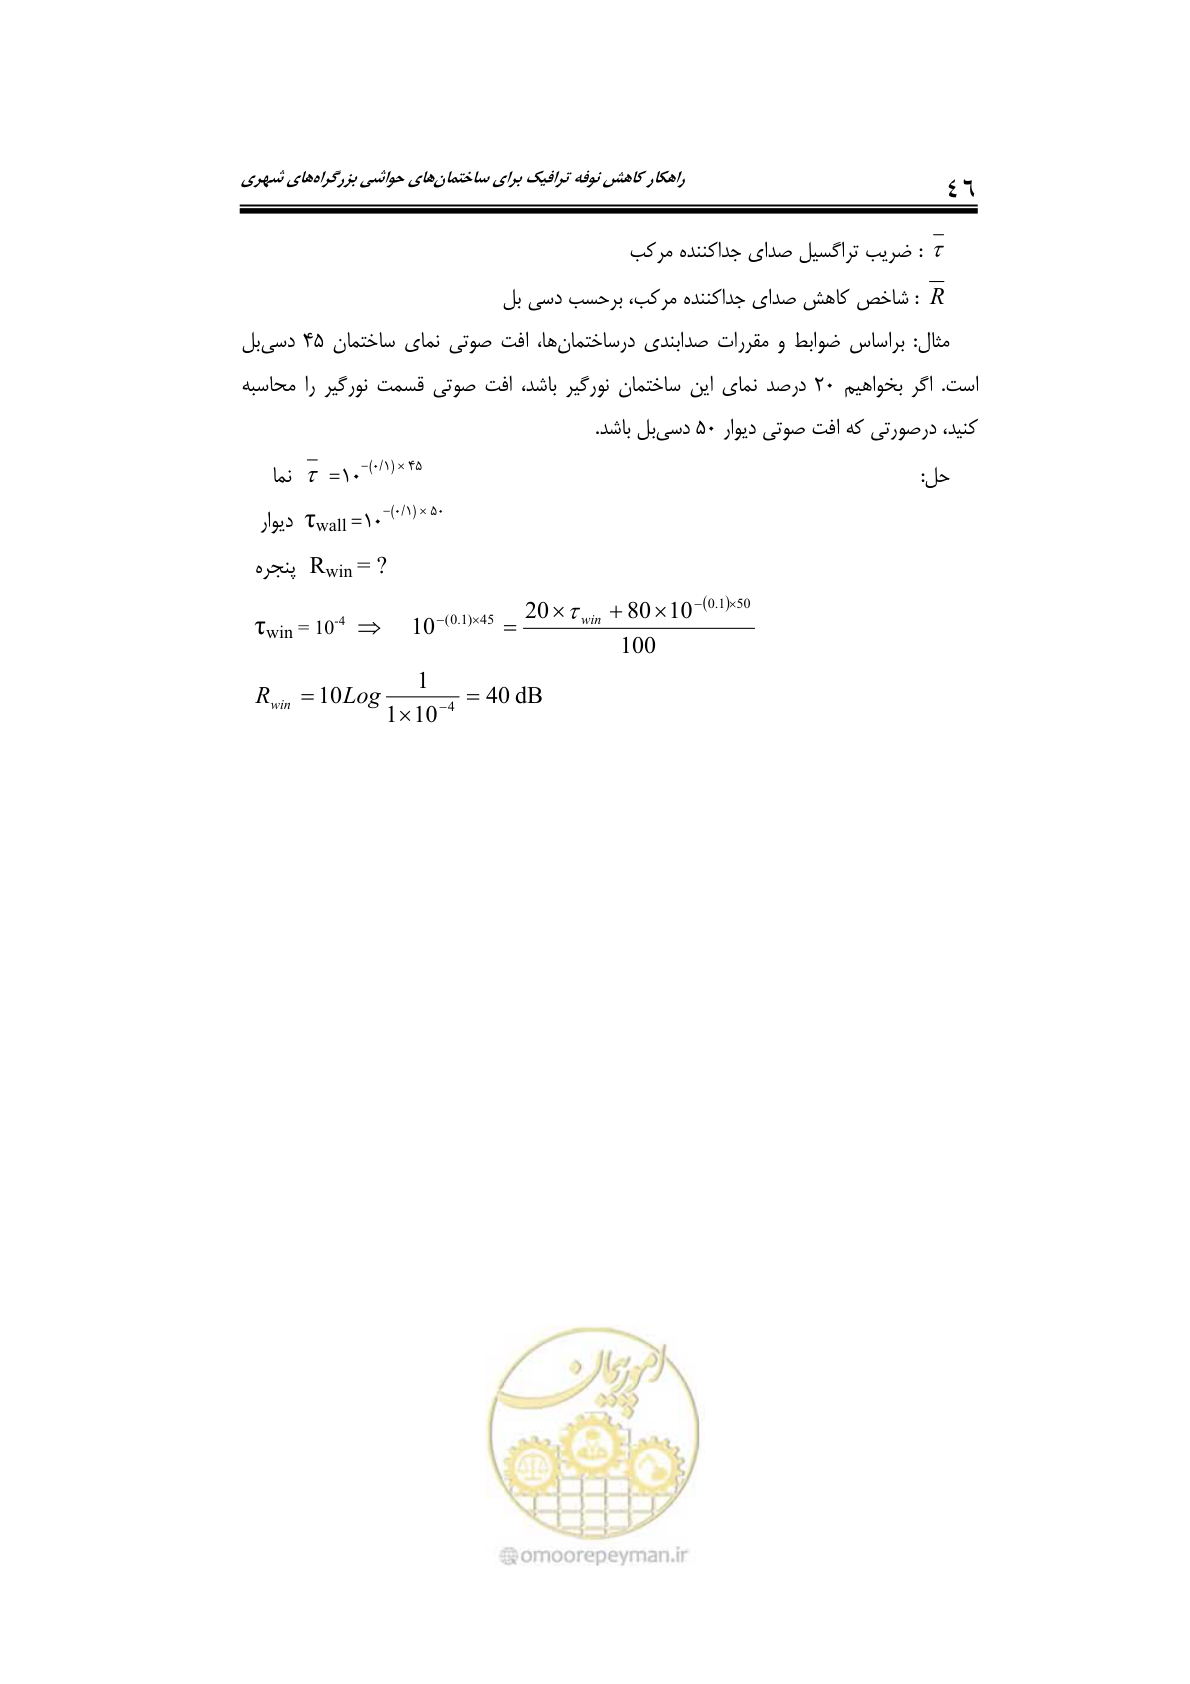 راهکار کاهش نوفه ترافیک برای ساختمان‌های حواشی بزرگراه‌های شهری
٤٦
τ̅ : ضریب تراگسیل صدای جداکننده مرکب
R̅ : شاخص کاهش صدای جداکننده مرکب، برحسب دسی بل
مثال: براساس ضوابط و مقررات صدابندی درساختمان‌ها، افت صوتی نمای ساختمان ۴۵ دسی‌بل
است. اگر بخواهیم ۲۰ درصد نمای این ساختمان نورگیر باشد، افت صوتی قسمت نورگیر را محاسبه
کنید، درصورتی که افت صوتی دیوار ۵۰ دسی‌بل باشد.
حل:
نما τ̅ =۱۰^{−(۰/۱)×۴۵}
دیوار τ_wall =۱۰^{−(۰/۱)×۵۰}
پنجره R_win = ?
τ_win = 10^{-4} ⇒ 10^{−(0.1)×45} = \frac{20×τ_win + 80×10^{−(0.1)×50}}{100}
R_win = 10Log \frac{1}{1×10^{−4}} = 40 dB
امور پیمان
@omoorepeyman.ir